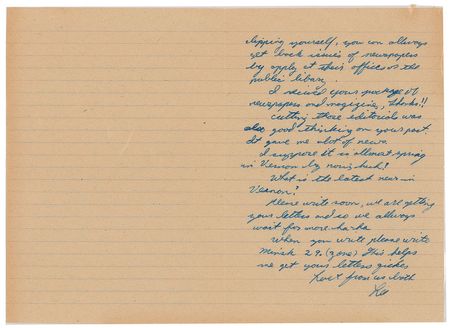 clipping yourself, you can allways
get back issues of newspapers
by apply at their office or the
public libary.
I recived your package of
newspapers and magizine, thanks!!
cutting those editorial was
also good thinking on your part.
It gave me alot of news.
I suppose it is allmost spring
in Vernon by now, huh?
What is the latest news in
Vernon?
Please write soon, we are getting
your letters and so we allways
wait for more haha
When you write please write
Minsk 29. (zone) This helps
me get your letters
Love from us both
Lee